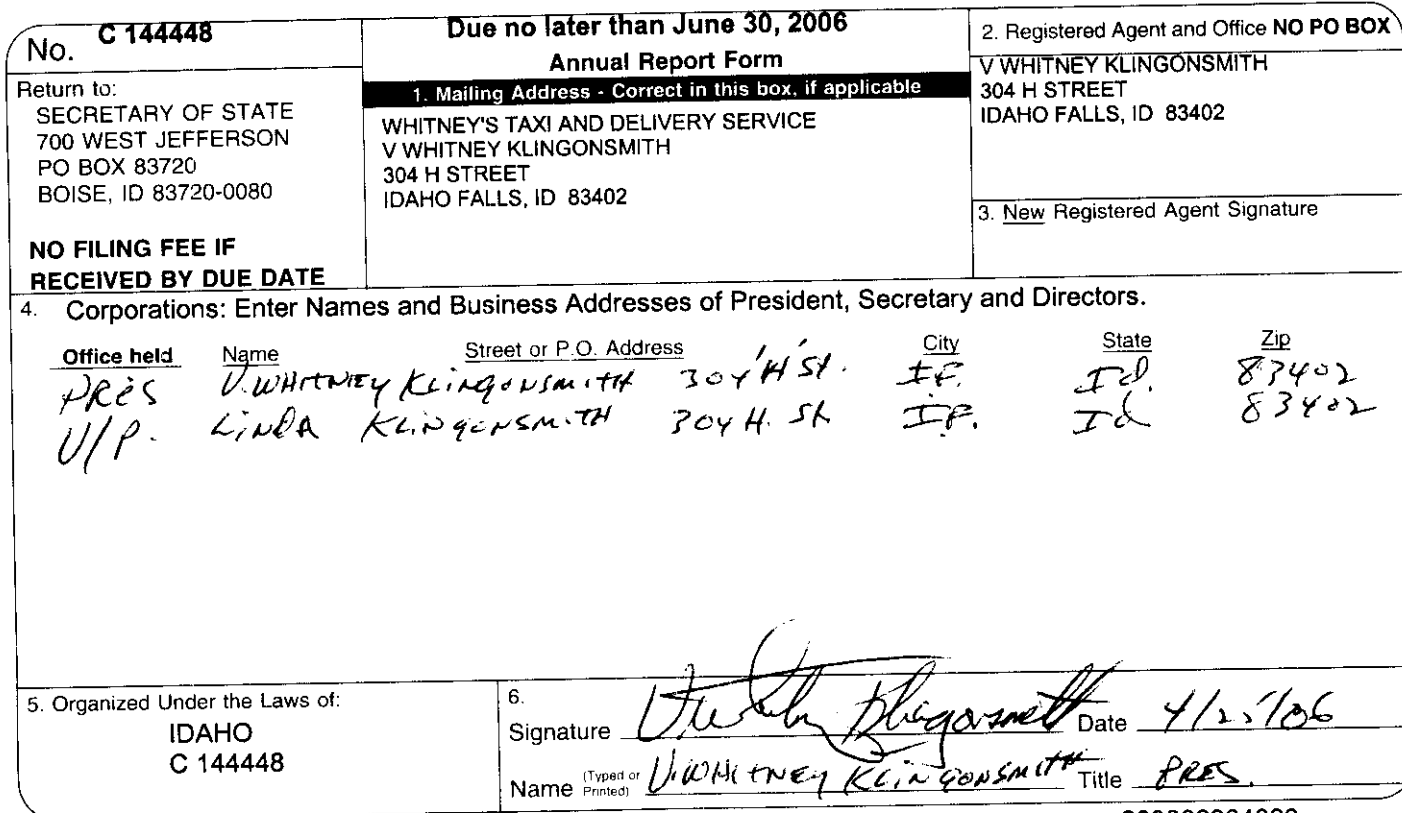 No. C 144448
Return to:
SECRETARY OF STATE
700 WEST JEFFERSON
PO BOX 83720
BOISE, ID 83720-0080
NO FILING FEE IF
RECEIVED BY DUE DATE
Due no later than June 30, 2006
Annual Report Form
1. Mailing Address - Correct in this box, if applicable
WHITNEY'S TAXI AND DELIVERY SERVICE
V WHITNEY KLINGONSMITH
304 H STREET
IDAHO FALLS, ID 83402
2. Registered Agent and Office NO PO BOX
V WHITNEY KLINGONSMITH
304 H STREET
IDAHO FALLS, ID 83402
3. New Registered Agent Signature
4. Corporations: Enter Names and Business Addresses of President, Secretary and Directors.
Office held Name Street or P.O. Address City State Zip
PRES V. WHITNEY KLINGONSMITH 304 'H' St. I.F. Id. 83402
V/P. LINDA KLINGONSMITH 304 H. St I.F. Id 83402
5. Organized Under the Laws of:
IDAHO
C 144448
6.
Signature Date 4/25/06
Name (Typed or Printed) V. WHITNEY KLINGONSMITH Title PRES.